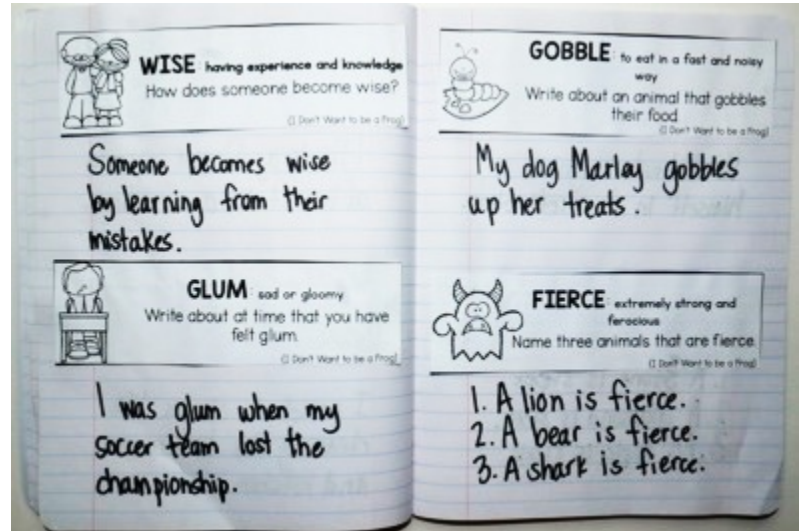 WISE : having experience and knowledge
How does someone become wise?
(I Don't Want to be a Frog)
Someone becomes wise
by learning from their
mistakes.
GLUM : sad or gloomy
Write about at time that you have
felt glum.
(I Don't Want to be a Frog)
I was glum when my
soccer team lost the
championship.
GOBBLE : to eat in a fast and noisy
way
Write about an animal that gobbles
their food
(I Don't Want to be a Frog)
My dog Marley gobbles
up her treats.
FIERCE : extremely strong and
ferocious
Name three animals that are fierce.
(I Don't Want to be a Frog)
1. A lion is fierce.
2. A bear is fierce.
3. A shark is fierce.